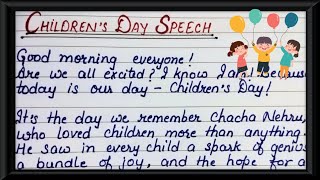 CHILDREN'S DAY SPEECH
Good morning everyone!
Are we all excited? I know I am! Because
today is our day - Children's Day!
It's the day we remember Chacha Nehru,
who loved children more than anything.
He saw in every child a spark of genius
a bundle of joy, and the hope for a